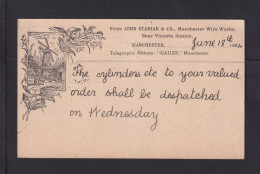 From JOHN STANIAR & CO., Manchester Wire Works,
Near Victoria Station,
MANCHESTER, June 18th
Telegraphic Address: "GAUZE," Manchester.
The cylinders etc to your valued
order shall be despatched
on Wednesday